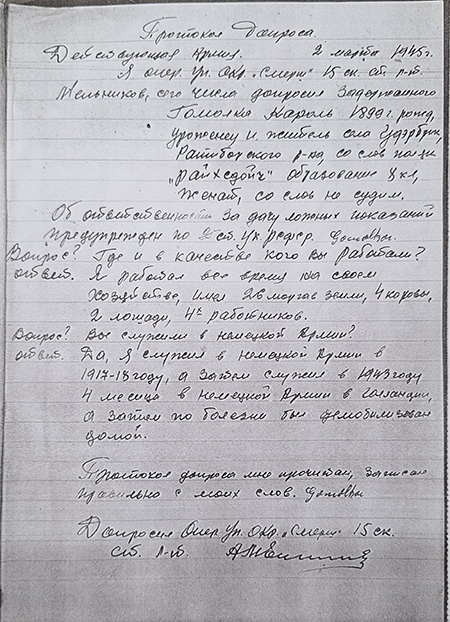 Протокол Допроса.
Действующая Армия. 2 марта 1945г.
Я опер. Уп. Окр. "Смерш" 15 ск. ст. л-т.
Мельников, сего числа допросил Задержанного
Гомолка Кароль 1899 г. рожд.
уроженец и житель села
р-на, со слов нации
"райхсдойч" образование 8 кл,
женат, со слов не судим.
Об ответственности за дачу ложных показаний
предупрежден по ст. Ук.
Вопрос? Где и в качестве кого Вы Работали?
ответ. Я работал все время на своем
хозяйстве, имел 26 моргов земли, 4 коровы,
2 лошади, 4х работников.
Вопрос? Вы служили в немецкой Армии?
ответ. Да, я служил в немецкой Армии в
1917-18 году, а затем служил в 1943 году
4 месяца в немецкой Армии в Голландии,
а затем по болезни был демобилизован
домой.
Протокол допроса мне прочитан, записан
правильно с моих слов.
Допросил Опер. Уп. Окр. "Смерш" 15 ск.
Ст. Л-т.